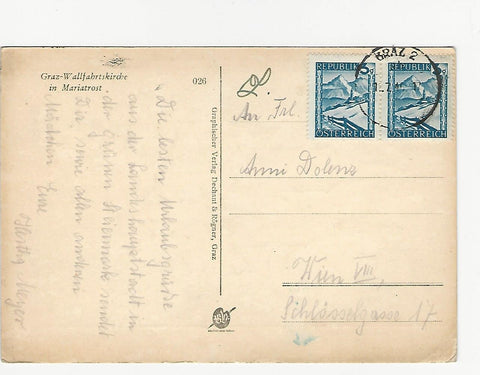 Graz-Wallfahrtskirche
in Mariatrost
026
"Die besten Urlaubsgrüße
aus der Landeshauptstadt in
der Grünen Steiermark sendet
Dir sowie allen anderen
Mädchen Eure
Herta Mayer
Graphischer Verlag Dechant & Rögner, Graz
REPUBLIK
ÖSTERREICH
REPUBLIK
ÖSTERREICH
GRAZ 2
An Frl.
Anni Dolenz
Wien VIII,
Schlösselgasse 17